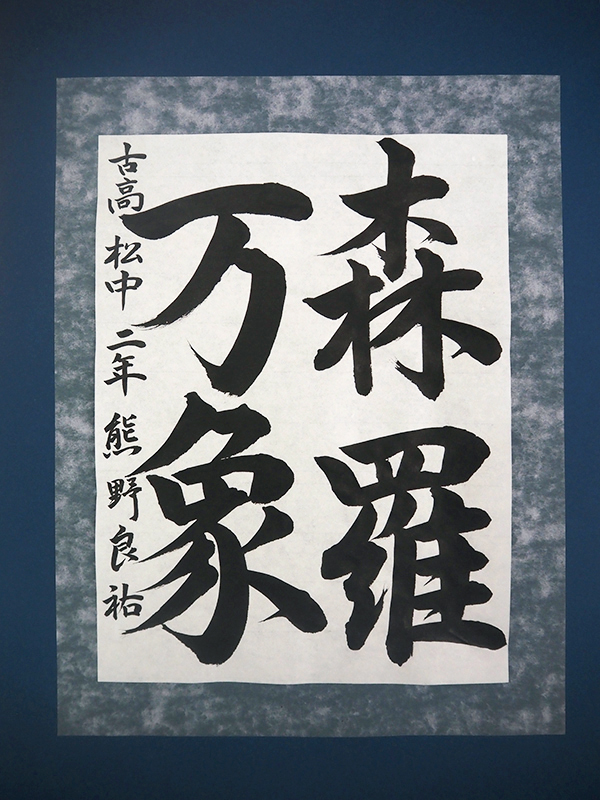 森羅
万象
古高松中二年熊野良祐